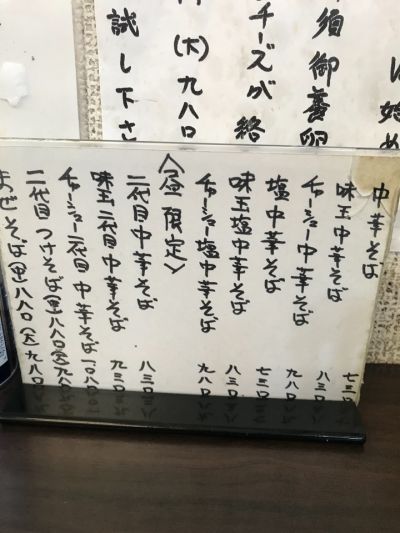 は始め
須御養卵
チーズが絡
(大)九八〇
試し下さ
中華そば 七三〇
味玉中華そば 八三〇
チャーシュー中華そば 九八〇
塩中華そば 七三〇
味玉塩中華そば 八三〇
チャーシュー塩中華そば 九八〇
〈昼限定〉
二代目中華そば 八三〇
味玉二代目中華そば 九三〇
チャーシュー二代目中華そば 一〇八〇
二代目つけそば(里)八八〇(大)九八〇
まぜそば(里)八八〇(大)九八〇